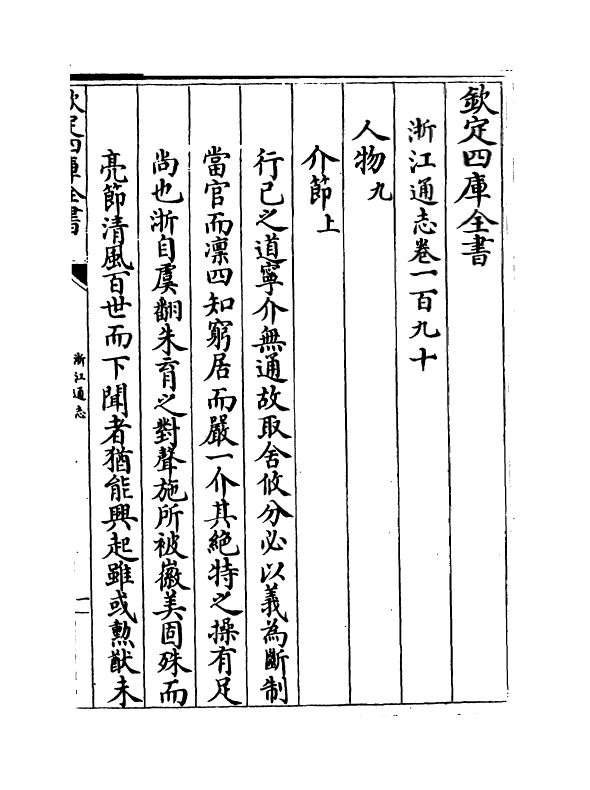 欽定四庫全書
浙江通志卷一百九十
人物九
介節上
行已之道寧介無通故取舍攸分必以義為斷制
當官而凛四知窮居而嚴一介其絶特之操有足
尚也浙自虞翻朱育之對聲施所被徽美固殊而
亮節清風百世而下聞者猶能興起雖或勲猷未
欽定四庫全書
浙江通志
一